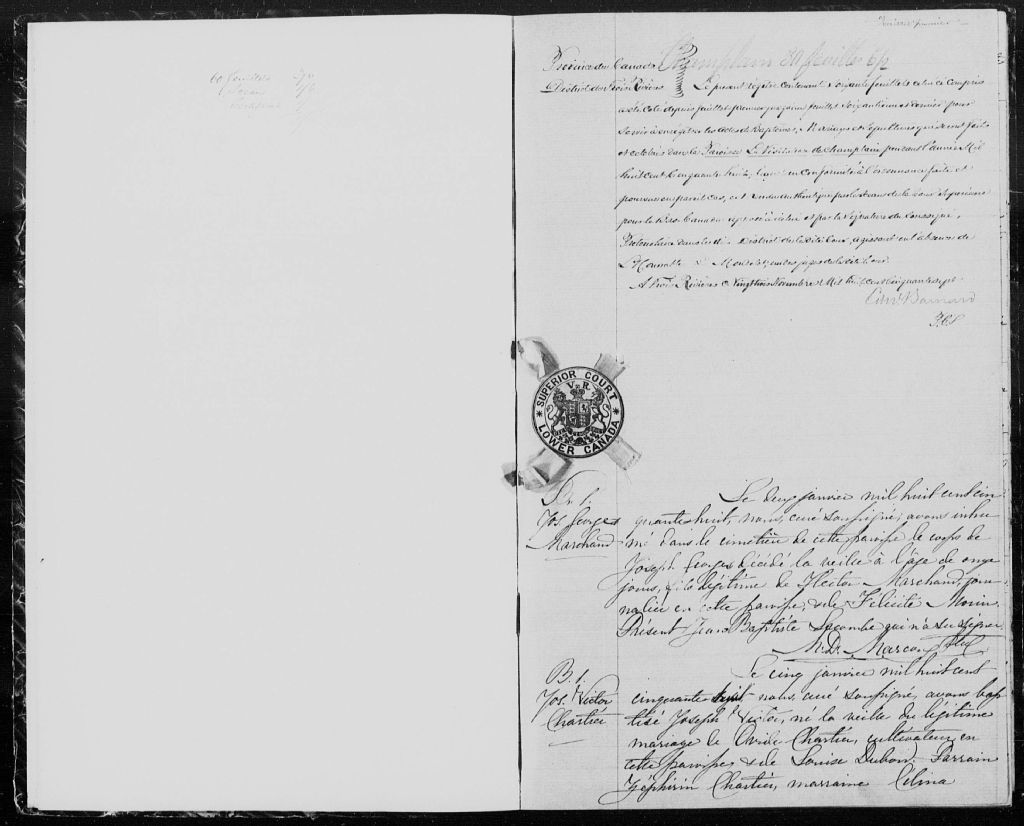 60 feuilles
Feuillet premier
Province du Canada Champlain 30 feuilles
District des Trois Rivières Le present registre contenant soixante feuillets celui ci compris
a été coté depuis feuillet premier jusqu'au feuillet soixantième et dernier pour
servir à enregistrer les actes de Baptêmes, Mariages et Sépultures qui seront faits
et célébrés dans la Paroisse La Visitation de Champlain pendant l'année Mil
huit cent Cinquante huit, en conformité à l'ordonnance faite et
pourvue en pareil cas, et rendu authentique par le Sceau de la Cour Supérieure
pour le Bas-Canada apposé à icelui et par la Signature du Soussigné,
Protonotaire dans le dit District de la dite Cour, agissant en l'absence de
L'Honorable Mondelet, un des juges de la dite Cour.
A Trois Rivières ce Vingt trois Novembre Mil huit cent Cinquante sept.
Edwd Barnard
P.C.S
SUPERIOR COURT
V. R.
LOWER CANADA
S. 1.
Jos. Georges
Marchand
Le deux janvier mil huit cent cin
quante huit, nous, curé soussigné, avons inhu
mé dans le cimetière de cette paroisse le corps de
Joseph Georges décédé la veille à l'âge de onze
jours, fils légitime de Hector Marchand, jour
nalier en cette paroisse, & de Félicité Morin.
Présent Jean Baptiste Lacombe qui n'a su signer
M. D. Marcoux Ptre
B. 1.
Jos. Victor
Chartier
Le cinq janvier mil huit cent
cinquante huit nous, curé soussigné, avons bap
tisé Joseph Victor, né la veille du légitime
mariage de Ovide Chartier, cultivateur en
cette paroisse & de Louise Dubord. Parrain
Zéphirin Chartier, marraine Célina